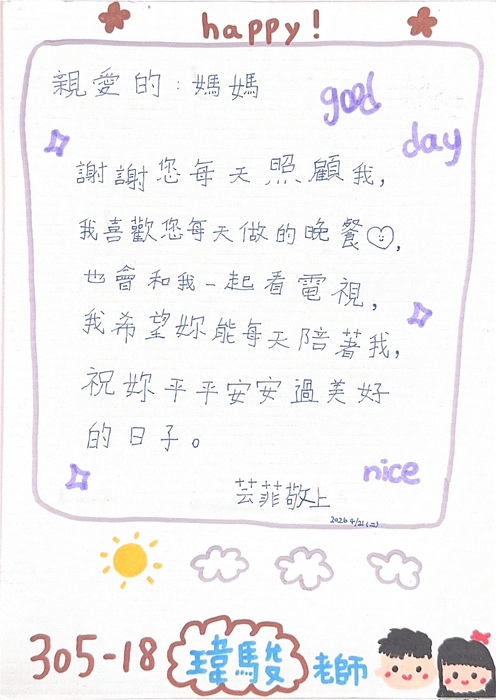 happy!
親愛的：媽媽
good
day
謝謝您每天照顧我，
我喜歡您每天做的晚餐，
也會和我一起看電視，
我希望妳能每天陪著我，
祝妳平平安安過美好
的日子。
nice
芸菲敬上
2026 4/21(二)
305-18
瑋駿老師